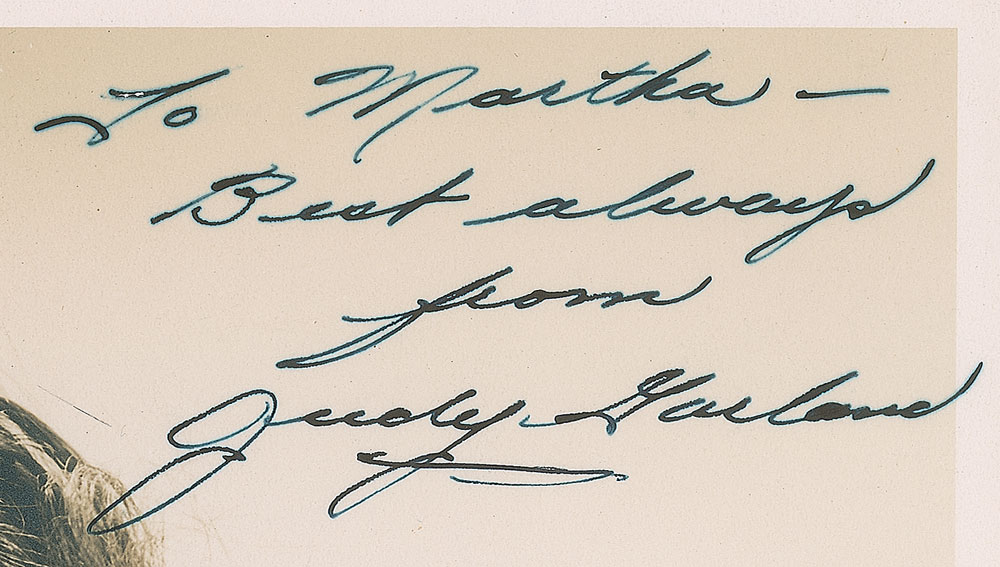 To Martha —
Best always
from
Judy Garland